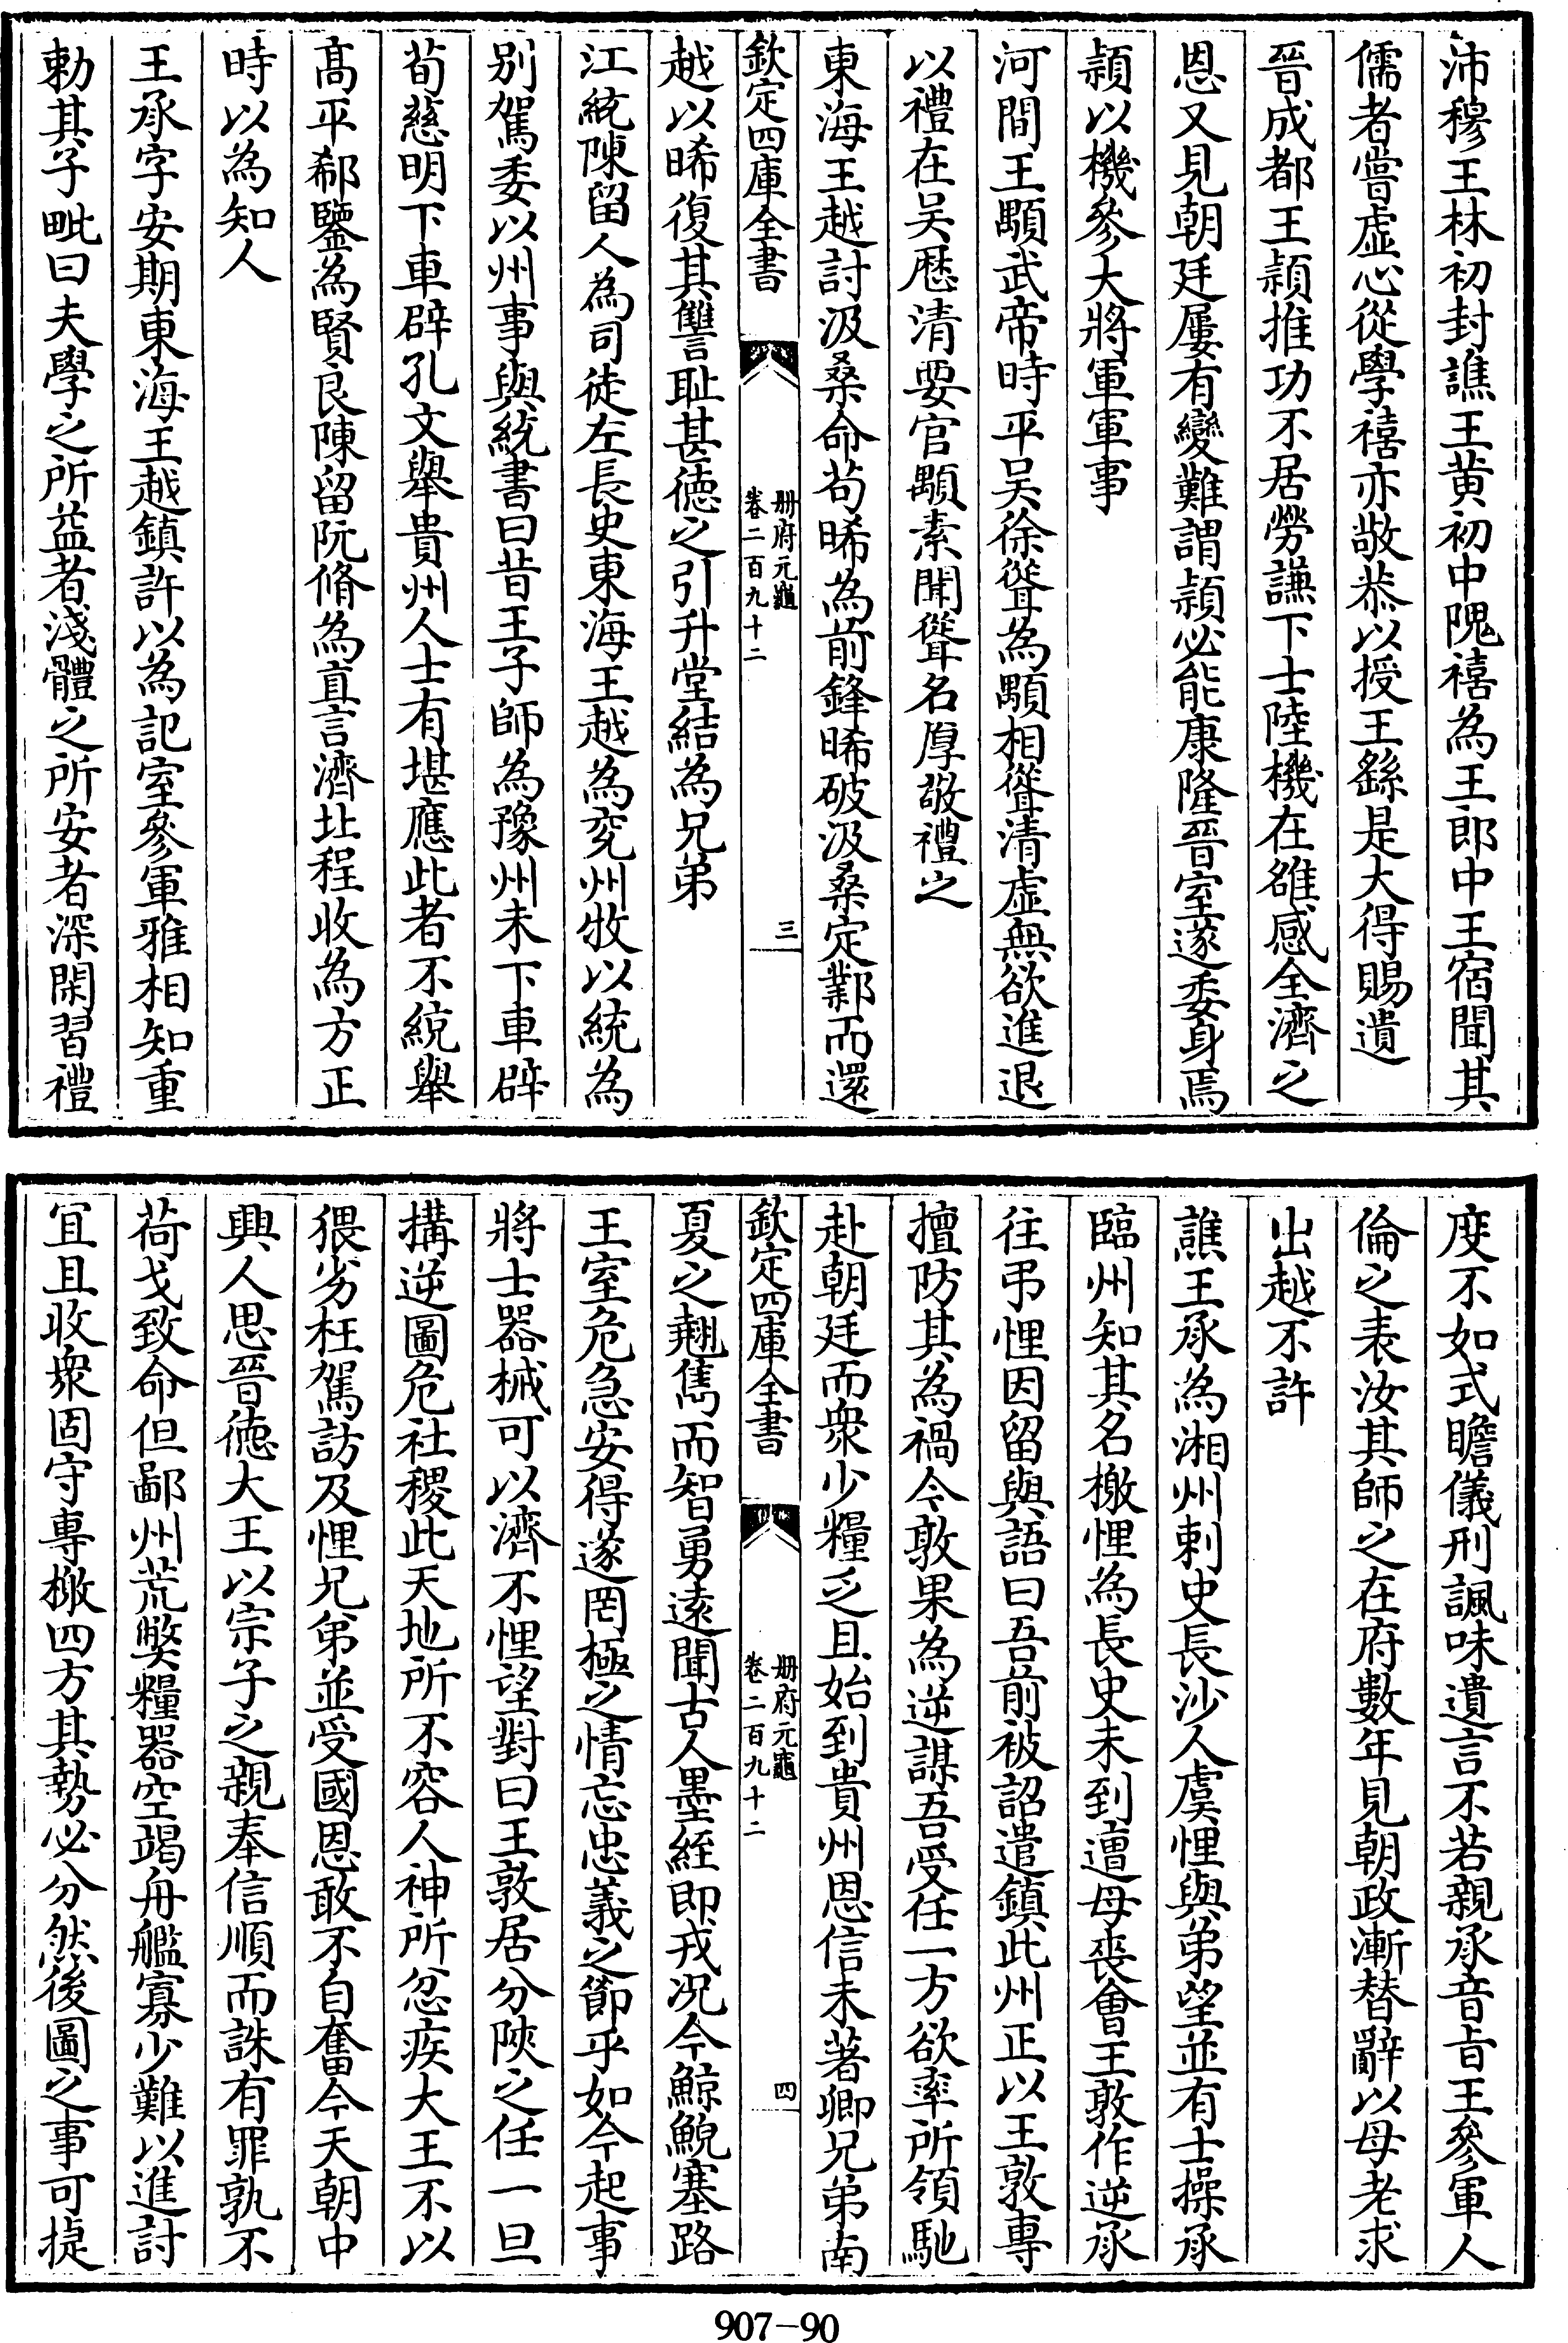 沛穆王林初封譙王黄初中隗禧為王郎中王宿聞其
儒者嘗虚心從學禧亦敬恭以授王繇是大得賜遺
晉成都王頴推功不居勞謙下士陸機在雒感全濟之
恩又見朝廷屢有變難謂頴必能康隆晉室遂委身焉
頴以機參大將軍軍事
河間王顒武帝時平吴徐聳為顒相聳清虚無欲進退
以禮在吴歴清要官顒素聞聳名厚敬禮之
東海王越討汲桑命茍晞為前鋒晞破汲桑定鄴而還
欽定四庫全書
册府元龜
卷二百九十二
三
越以晞復其讐耻甚徳之引升堂結為兄弟
江統陳留人為司徒左長史東海王越為兖州牧以統為
别駕委以州事與統書曰昔王子師為豫州未下車辟
荀慈明下車辟孔文舉貴州人士有堪應此者不統舉
髙平郗鑒為賢良陳留阮脩為直言濟北程收為方正
時以為知人
王承字安期東海王越鎮許以為記室參軍雅相知重
勅其子毗曰夫學之所益者淺體之所安者深閑習禮
度不如式瞻儀刑諷味遺言不若親承音㫖王參軍人
倫之表汝其師之在府數年見朝政漸替辭以母老求
出越不許
譙王承為湘州刺史長沙人虞悝與弟望並有士操承
臨州知其名檄悝為長史未到遭母喪會王敦作逆承
往弔悝因留與語曰吾前被詔遣鎮此州正以王敦專
擅防其為禍今敦果為逆謀吾受任一方欲率所領馳
赴朝廷而衆少糧乏且始到貴州恩信未著卿兄弟南
欽定四庫全書
册府元龜
卷二百九十二
四
夏之翹雋而智勇逺聞古人墨絰即戎况今鯨鯢塞路
王室危急安得遂罔極之情忘忠義之節乎如今起事
將士器械可以濟不悝望對曰王敦居分陜之任一旦
構逆圖危社稷此天地所不容人神所忿疾大王不以
猥劣枉駕訪及悝兄弟並受國恩敢不自奮今天朝中
興人思晉徳大王以宗子之親奉信順而誅有罪孰不
荷戈致命但鄙州荒弊糧器空竭舟艦寡少難以進討
宜且收衆固守專檄四方其勢必分然後圖之事可捷
907-90